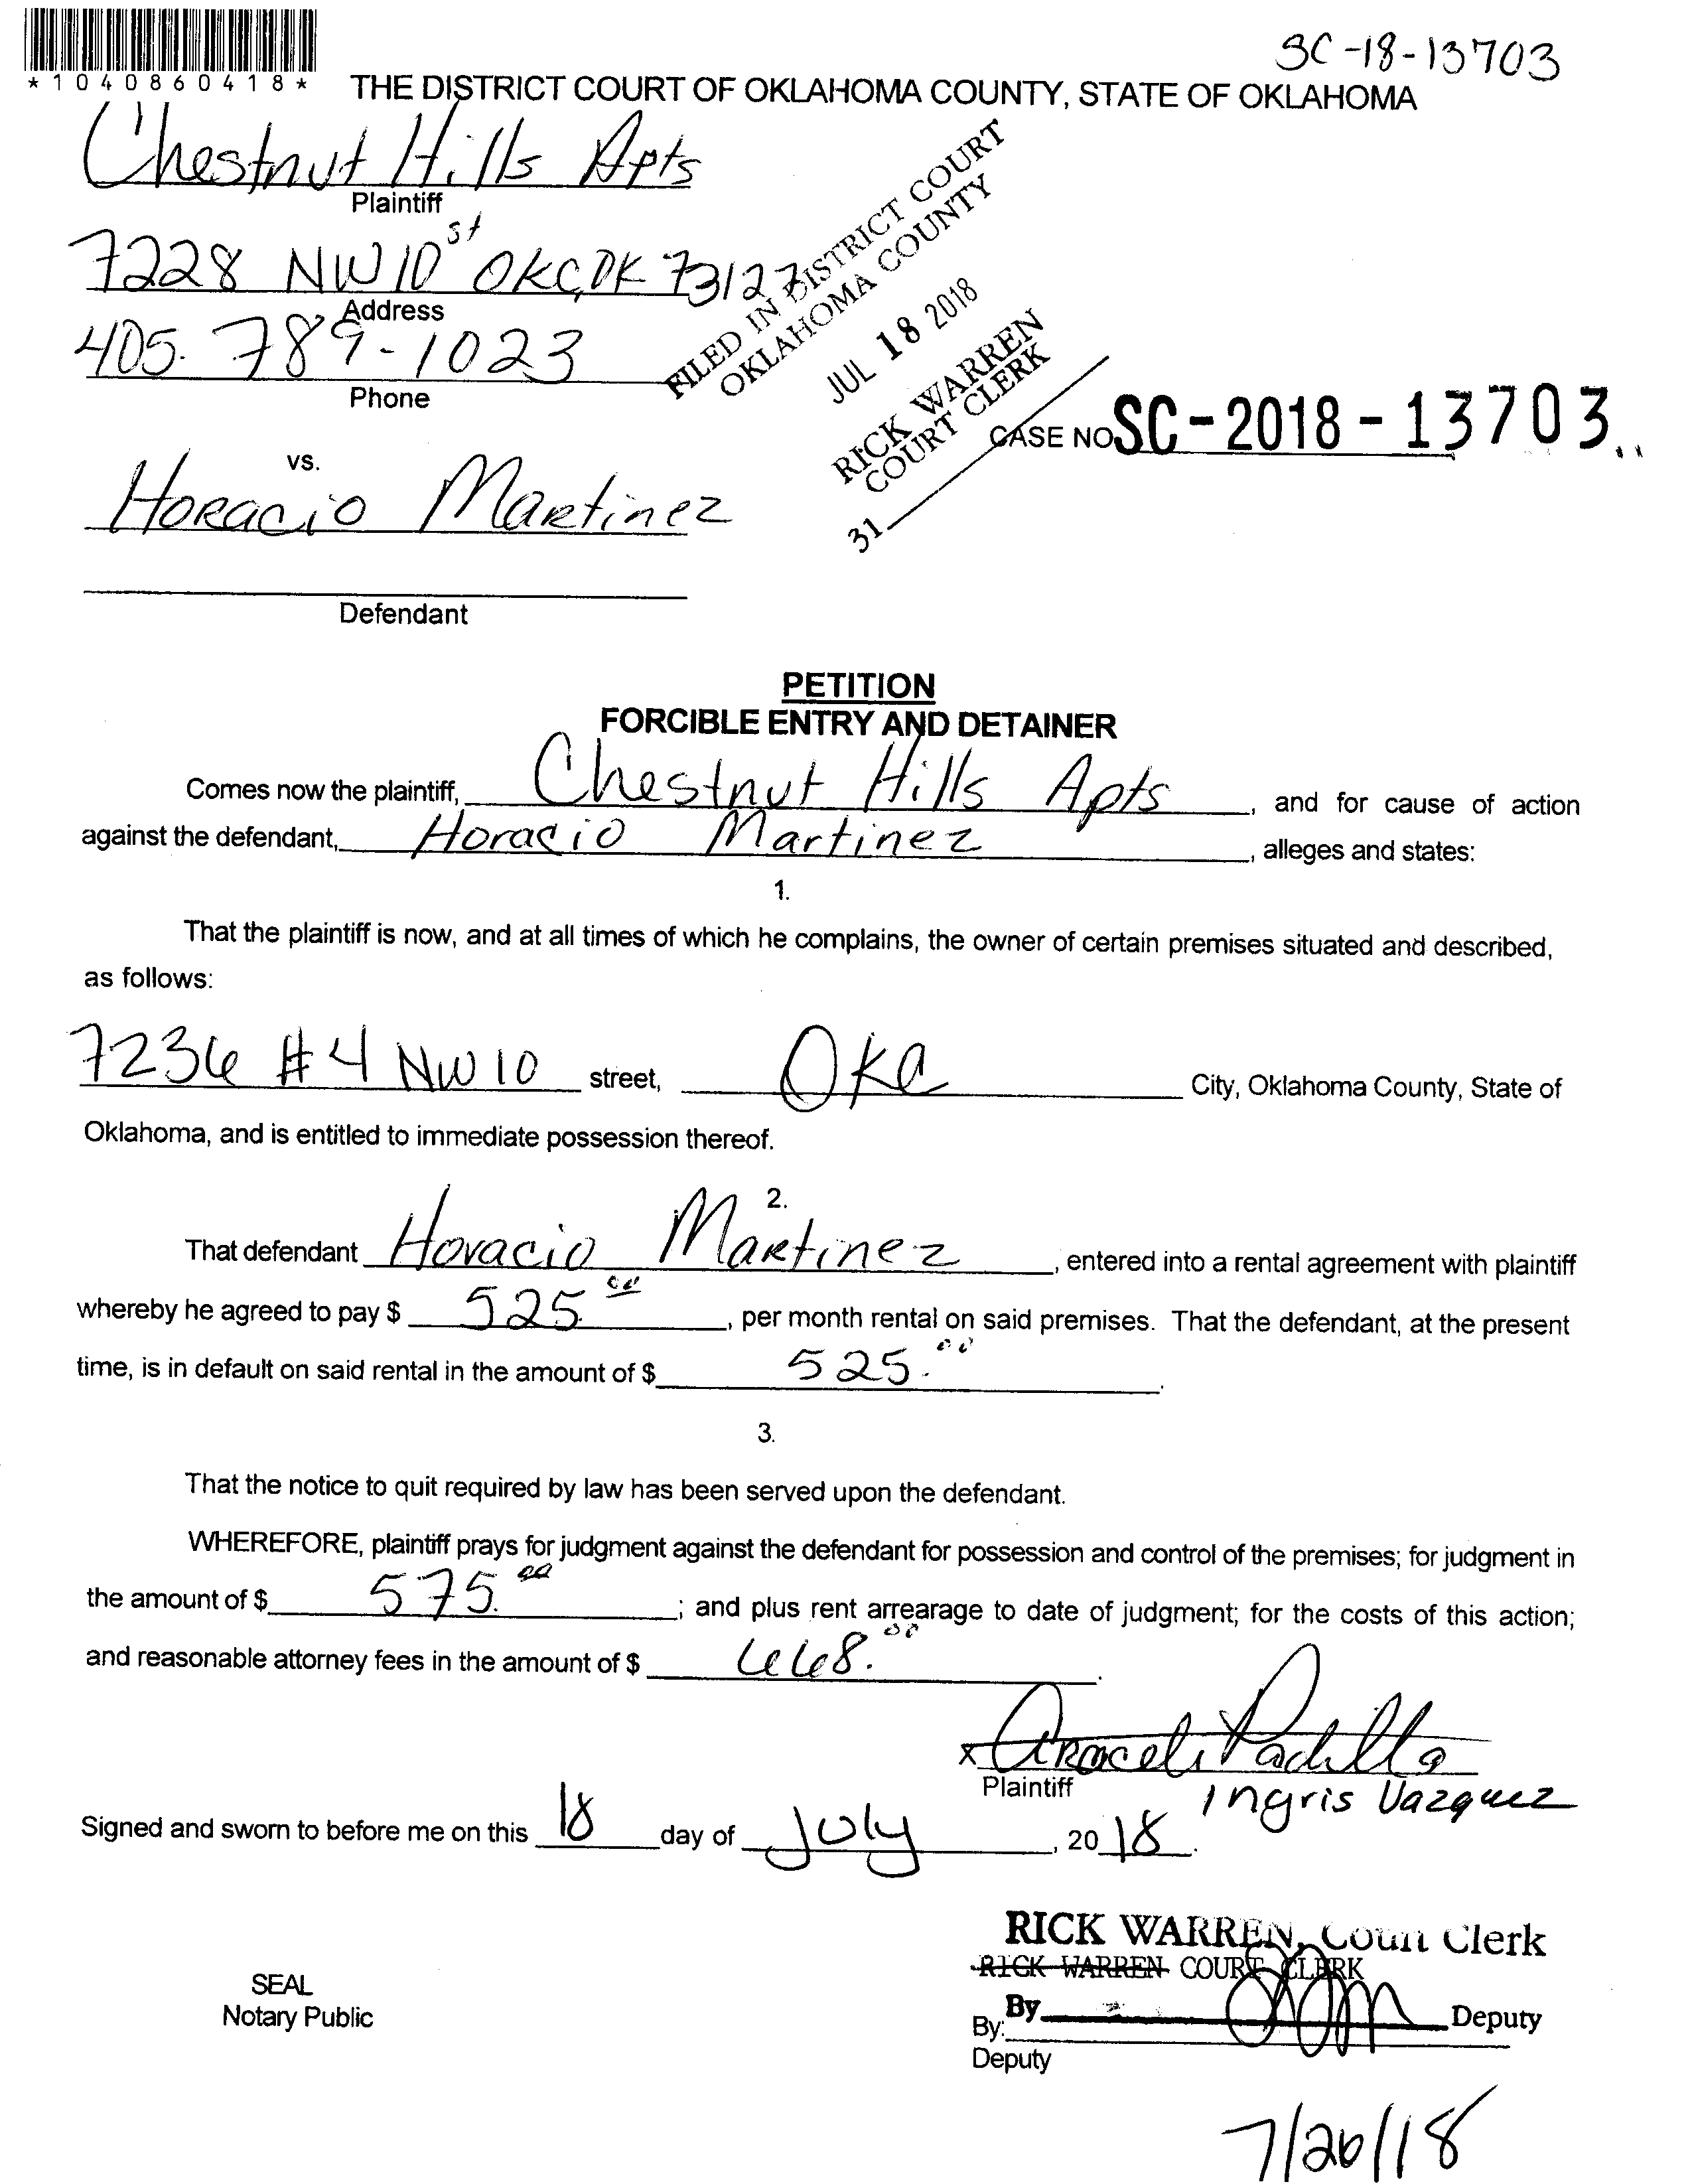 SC-18-13703
*1040860418*
THE DISTRICT COURT OF OKLAHOMA COUNTY, STATE OF OKLAHOMA
Chestnut Hills Apts
Plaintiff
7228 NW 10 st OKC, OK 73127
Address
405. 789-1023
Phone
FILED IN DISTRICT COURT
OKLAHOMA COUNTY
JUL 18 2018
RICK WARREN
COURT CLERK
31
CASE NO SC-2018-13703
vs.
Horacio Martinez
Defendant
PETITION
FORCIBLE ENTRY AND DETAINER
Comes now the plaintiff, Chestnut Hills Apts, and for cause of action
against the defendant, Horacio Martinez, alleges and states:
1.
That the plaintiff is now, and at all times of which he complains, the owner of certain premises situated and described,
as follows:
7236 #4 NW 10 street, OKC City, Oklahoma County, State of
Oklahoma, and is entitled to immediate possession thereof.
2.
That defendant Horacio Martinez, entered into a rental agreement with plaintiff
whereby he agreed to pay $ 525.00, per month rental on said premises. That the defendant, at the present
time, is in default on said rental in the amount of $ 525.00.
3.
That the notice to quit required by law has been served upon the defendant.
WHEREFORE, plaintiff prays for judgment against the defendant for possession and control of the premises; for judgment in
the amount of $ 575.00; and plus rent arrearage to date of judgment; for the costs of this action;
and reasonable attorney fees in the amount of $ 668.00.
x Araceli Padilla
Plaintiff
Ingris Vazquez
Signed and sworn to before me on this 18 day of July, 2018.
RICK WARREN, Court Clerk
RICK WARREN COURT CLERK
SEAL
Notary Public
By Deputy
By:
Deputy
7/26/18